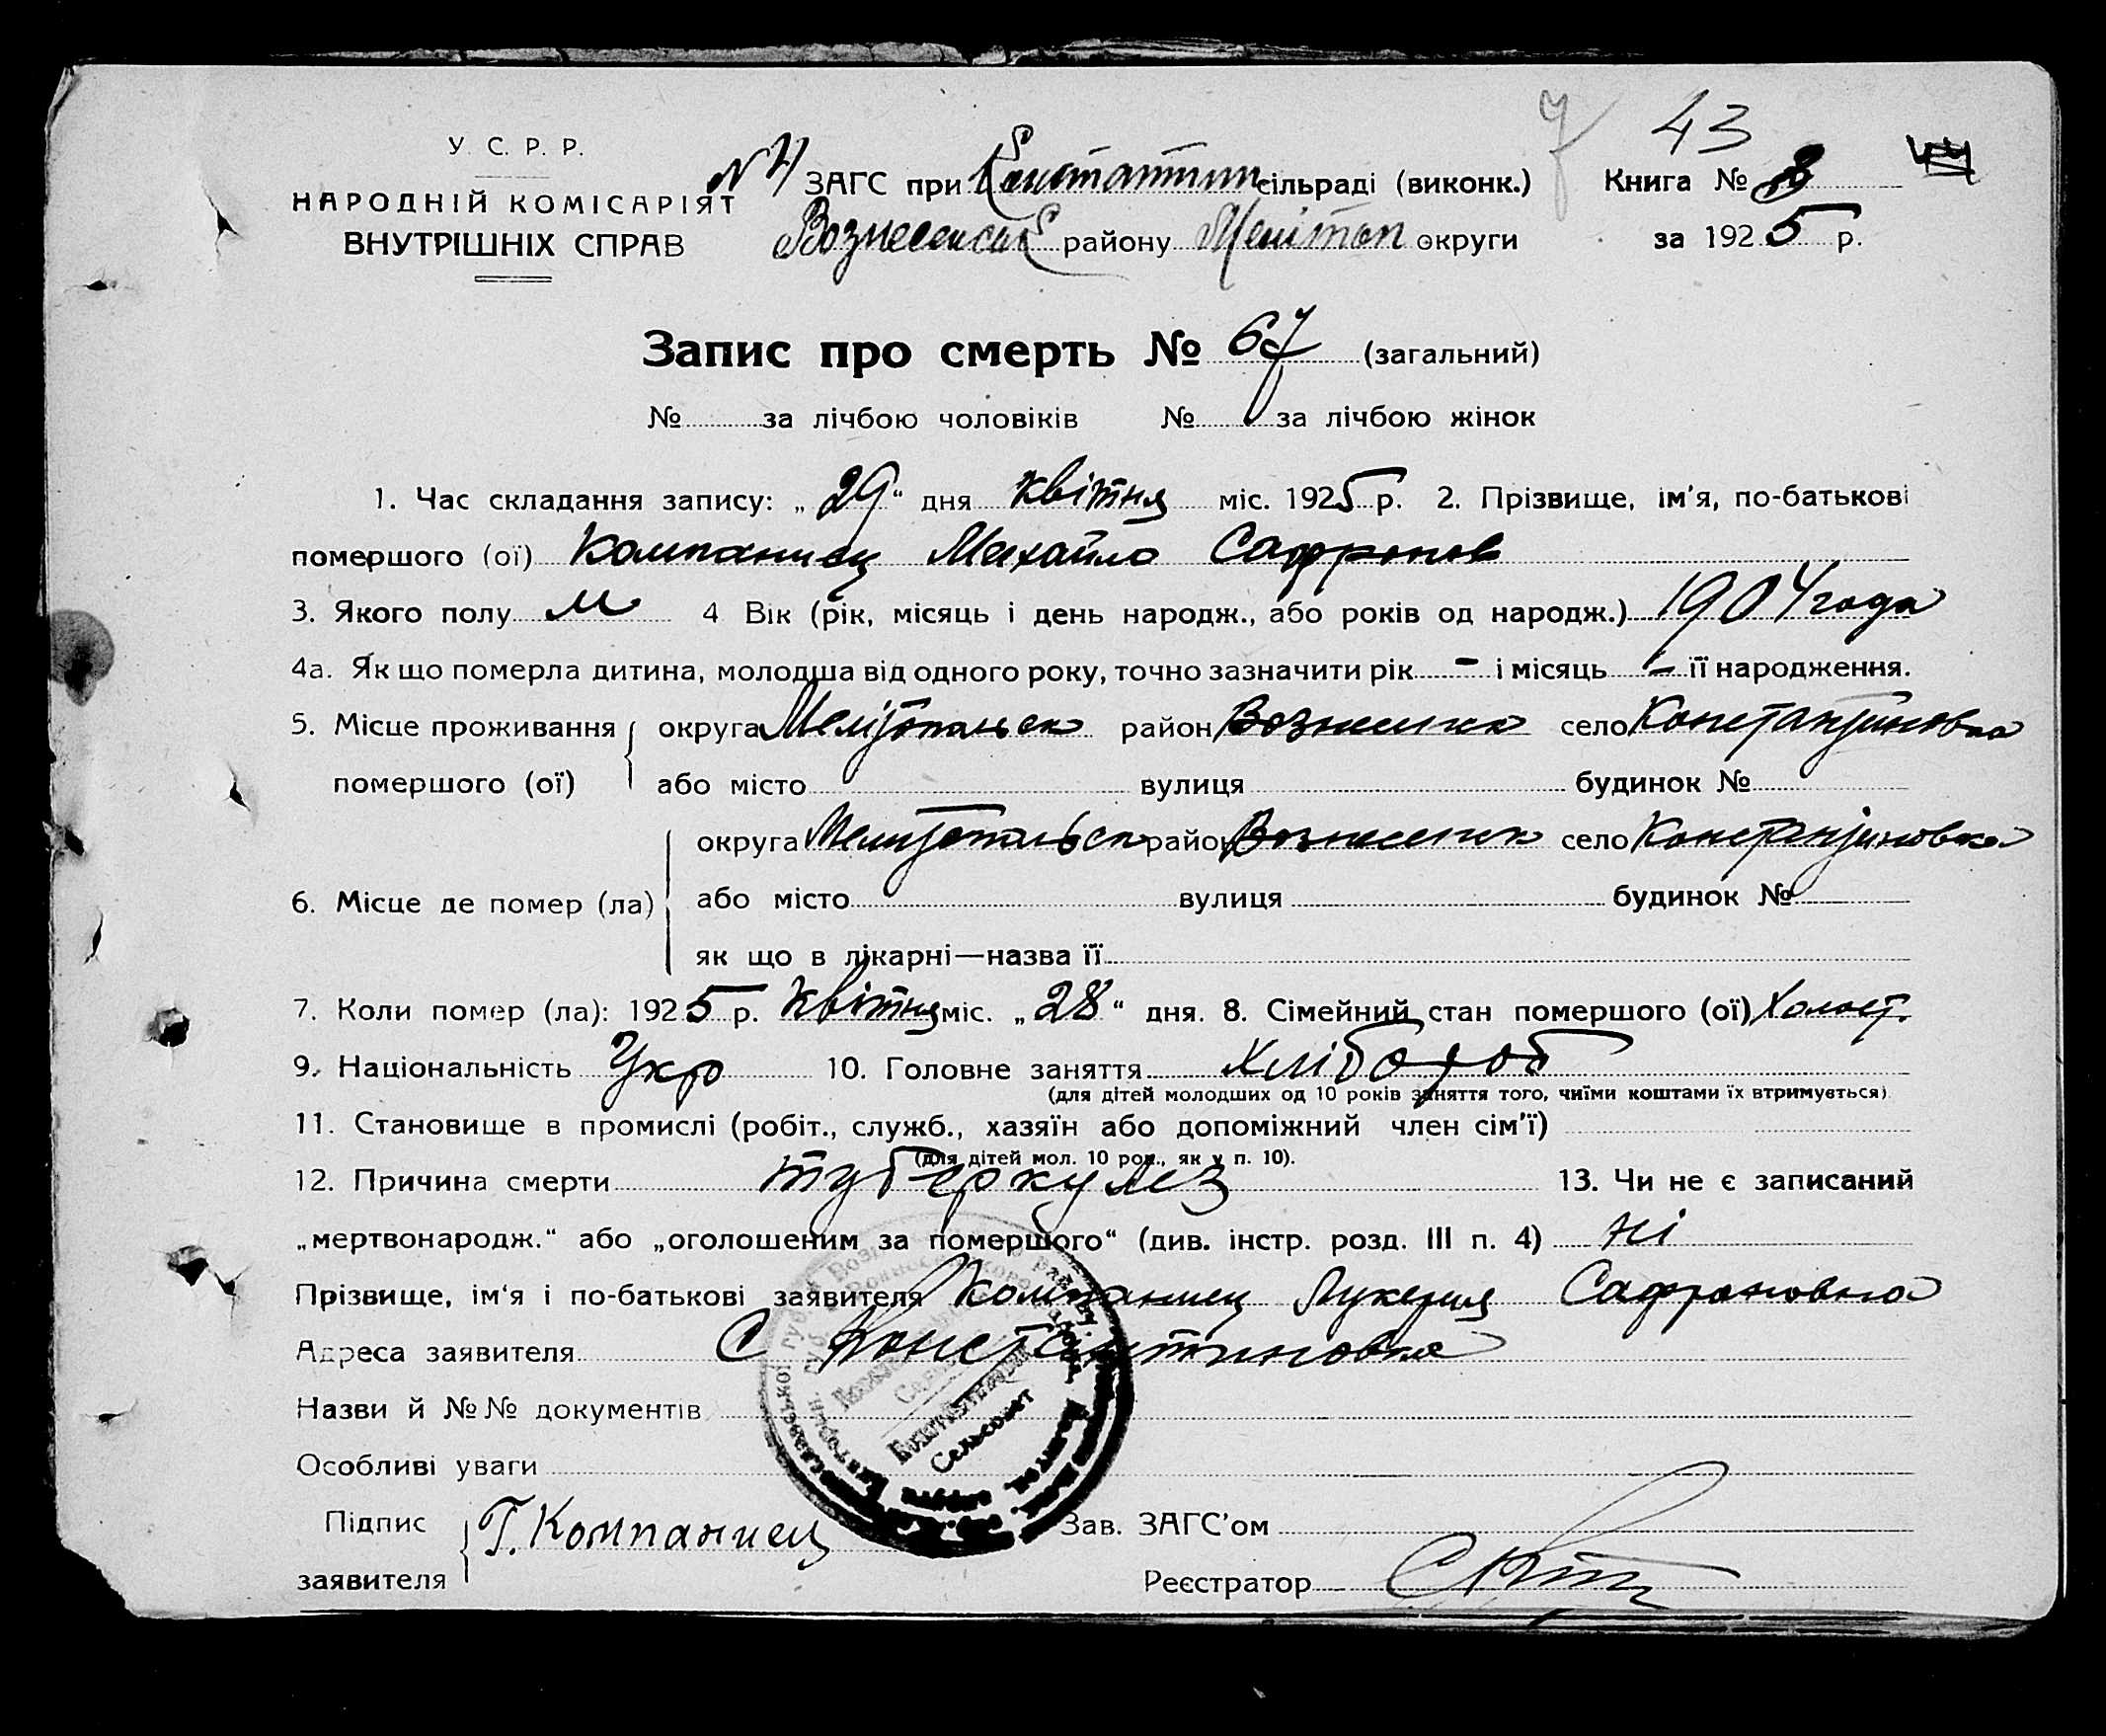 43
У. С. Р. Р.
НАРОДНІЙ КОМІСАРІЯТ
ВНУТРІШНІХ СПРАВ
ЗАГС при Константин сільраді (виконк.) Книга № 8
Вознесенськ району Мелітоп округи за 1925 р.
Запис про смерть № 67 (загальний)
№ за лічбою чоловіків № за лічбою жінок
1. Час складання запису: „29“ дня квітня міс. 1925 р. 2. Прізвище, ім’я, по-батькові
помершого (ої) Компаниец Михайло Сафронов
3. Якого полу м 4 Вік (рік, місяць і день народж., або років од народж.) 1904 года
4а. Як що померла дитина, молодша від одного року, точно зазначити рік - і місяць - її народження.
5. Місце проживання округа Мелітопольск район Вознесенск село Константиновка
помершого (ої) або місто вулиця будинок №
округа Мелитопольск район Вознесенск село Константиновка
6. Місце де помер (ла) або місто вулиця будинок №
як що в лікарні—назва її
7. Коли помер (ла): 1925 р. квітня міс. „28“ дня. 8. Сімейний стан помершого (ої) Холост.
9. Національність Укр 10. Головне заняття Хлібороб
(для дітей молодших од 10 років заняття того, чиїми коштами їх втримується)
11. Становище в промислі (робіт., служб., хазяїн або допоміжний член сім’ї)
(для дітей мол. 10 рок., як у п. 10).
12. Причина смерти туберкулез 13. Чи не є записаний
„мертвонародж.“ або „оголошеним за помершого“ (див. інстр. розд. III п. 4) ні
Прізвище, ім‘я і по-батькові заявителя Компаниец Лукерия Сафроновна
Адреса заявителя С Константиновка
Назви й №№ документів
Константиновский
Сельсовет
Особливі уваги
Підпис Г. Компаниец Зав. ЗАГС’ом
заявителя Реєстратор